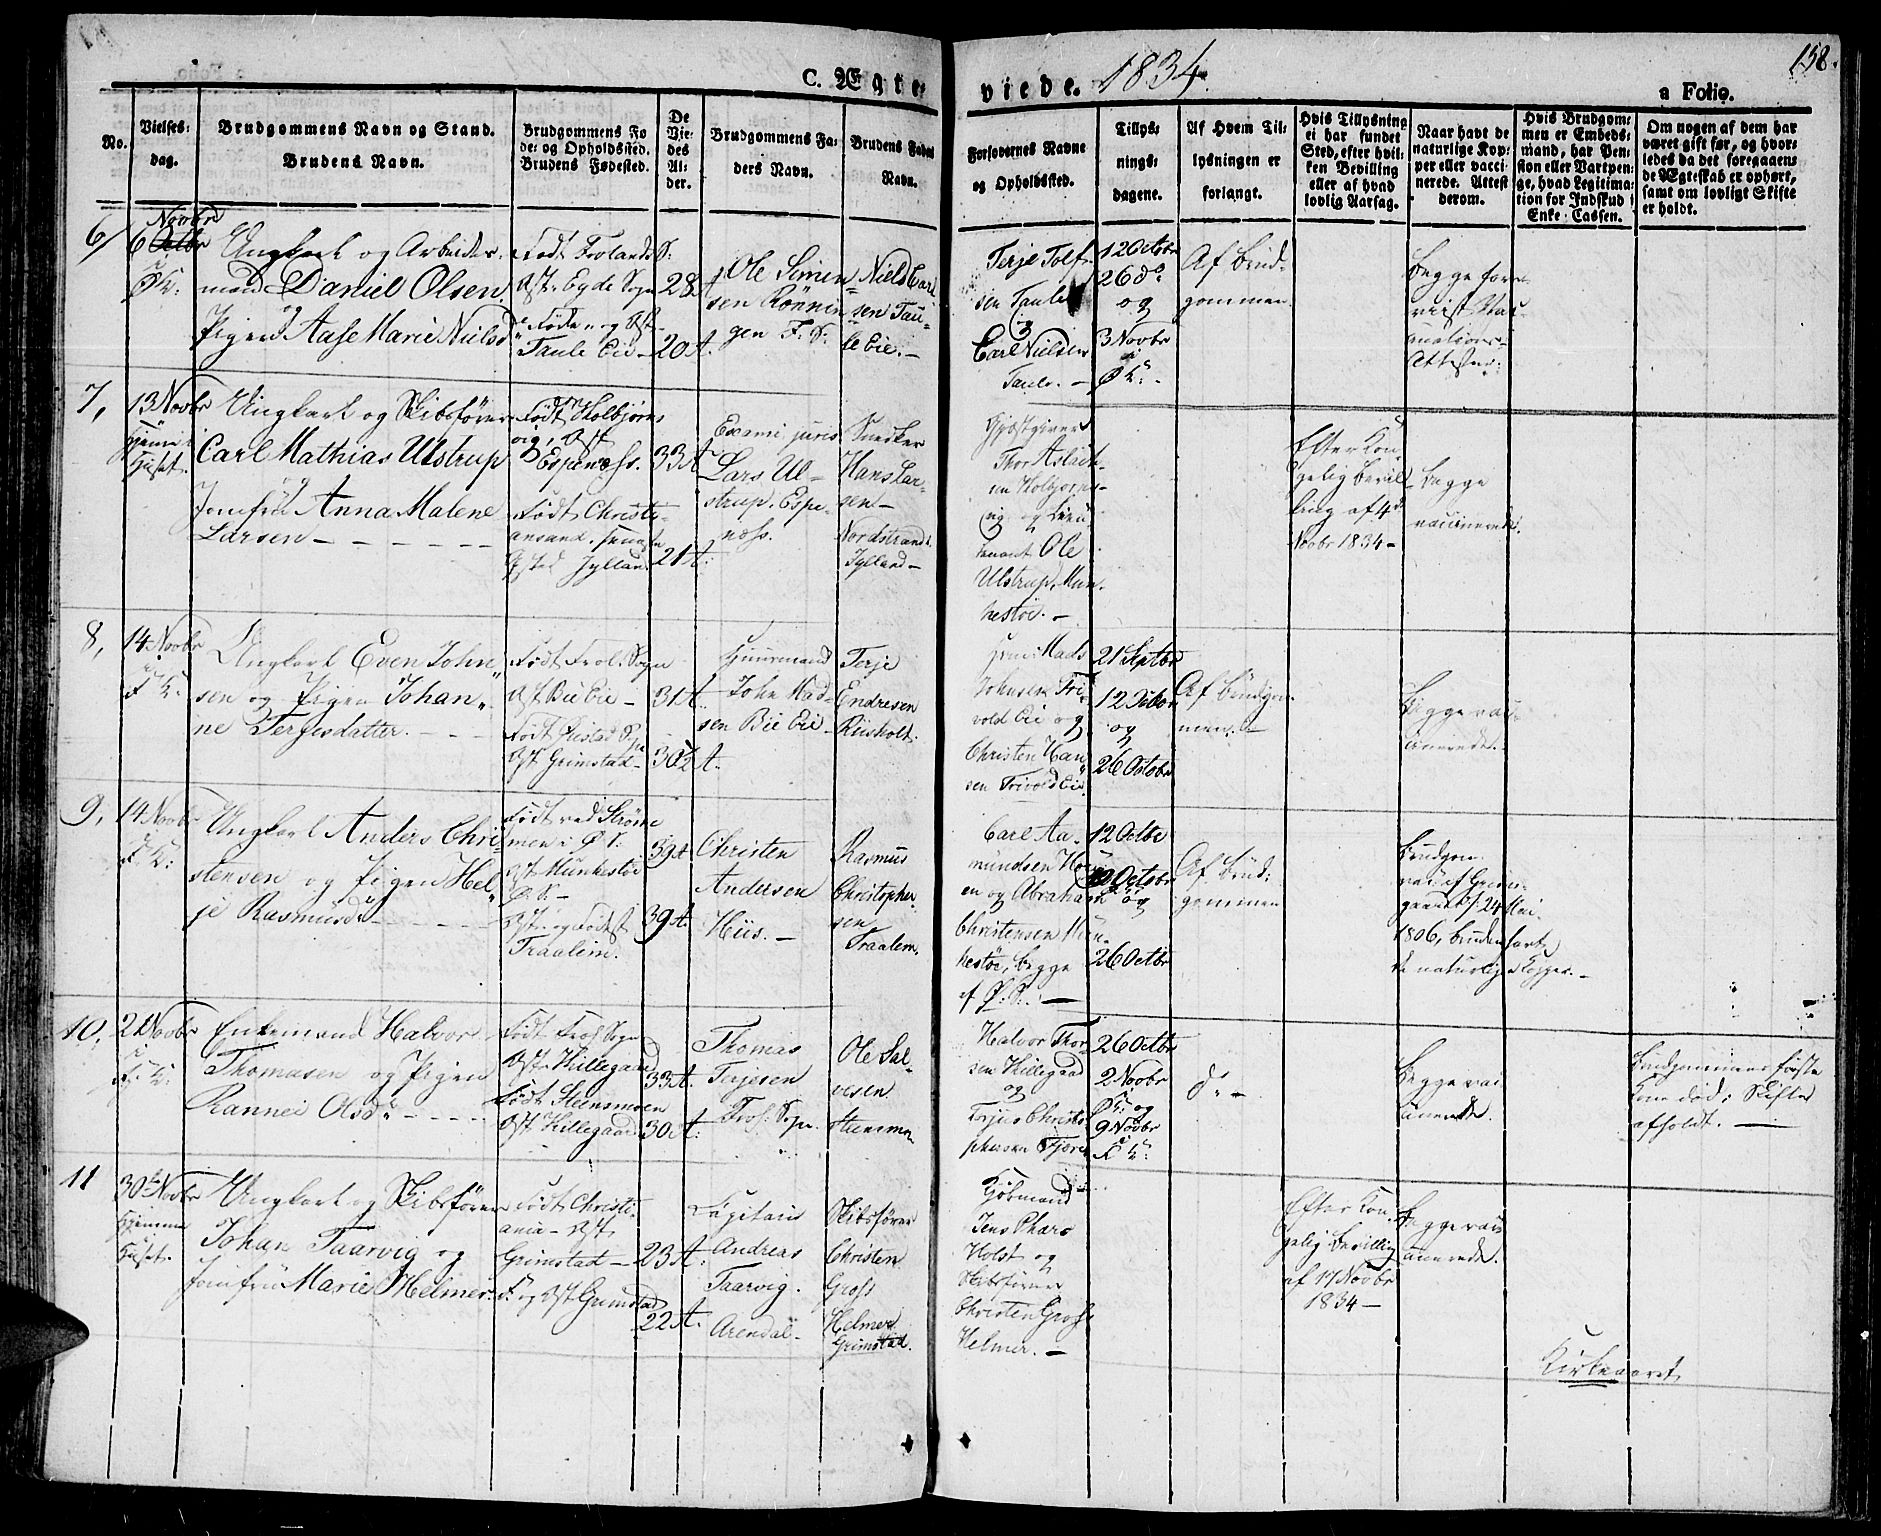 158.
C. Ægte-
viede. 1834.
a Folio.
No.
Vielses-
dag.
Brudgommens Navn og Stand.
Brudens Navn.
Brudgommens Fø
de- og Opholdssted.
Brudens Fødested.
De
Vie-
des
Al-
der.
Brudgommens Fa-
ders Navn.
Brudens Faders
Navn.
Forlovernes Navne
og Opholdssted.
Tillys-
nings-
dagene.
Af Hvem Til-
lysningen er
forlangt.
Hvis Tillysning
ei har fundet
Sted, efter hvil-
ken Bevilling
eller af hvad
lovlig Aarsag.
Naar havt de
naturlige Kop-
per eller vacci-
nerede. Attest
derom.
Hvis Brudgom-
men er Embeds-
mand, har Pen-
sion eller Vartpen-
ge, hvad Legitima-
tion for Indskud i
Enke-Cassen.
Om nogen af dem har
været gift før, og hvor-
ledes da det foregaaen-
de Ægteskab er ophørt,
samt om lovligt Skifte
er holdt.
6/
Novbr
6 Octbr
i
Ø K:
Ungkarl og Arbeids-
mand Daniel Olsen
og
Pigen Aase Marie Nielsd
Født Frolands S:
Opst. Eyde Sogn
Født og Opst
Taule Eie
28 A
20 A.
Ole Simen-
sen Rønnin-
gen F. S.
Niels Carl
sen Tau-
le Eie. -
Terje Tolf-
sen Taule
og
Carl Nielsen
Taule. -
12 Octbr
26 do
og
3 Novbr
i
Ø K: -
Af Brud-
gommen.
Begge fore-
viist Vac-
inations-
Attester.
7,
13 Novbr
hjemme i
Huset.
Ungkarl og Skibsfører
Carl Mathias Ulstrup
og
Jomfru Anna Malene
Larsen - - - - - -
Født Kolbjørns
vig, Opst
Espenes.
Født Christi-
ansand,
Opsted Jylland
33 A
21 A:
Exami juris
Lars Ul-
strup. Espe-
nes.
Snedker
Hans Lar-
sen -
Nordstrand i
Jylland -
Gjæstgiver
Thor Aslach-
sen Kolbjørns-
vig og Lieu-
tenant Ole
Ulstrup, Mun-
kestøe. -
Efter Kon-
gelig Bevil-
ling af 4de
Novbr 1834 -
Begge
vaccinerede.
8,
14 Novbr
i
F K:
Ungkarl Even John
sen og Pigen Johan-
ne Terjesdatter. - - -
Født Frol. Sogn
Opst Bie Eie -
Født
Opst Grimstad -
31 A
30½ A.
Huusmand
John Mad-
sen Bie Eie -
Terje
Endresen
Riisholt.
Mads
Johnsen Tri-
vold Eie og
Christen Han
sen Trivold Eie
21 Septbr
12 Octbr
og
26 Octobr
Af Brudgom-
men. -
Begge vac-
cinerede. -
9,
14 Novbr
i
F K:
Ungkarl Anders Chri-
stensen og Pigen Hel-
je Rasmusd. - - - - -
Født ved Strøm-
men i Ø S:
Opst Munkestøe
Ø. S -
Opst. og Født
Traalem.
39 A
39 A.
Christen
Andersen
Hiis. -
Rasmus
Christopher-
sen
Traalem.
Carl Aa-
mundsen
en og Abraham
Christensen Mun-
kestøe, begge
af Ø: S: -
12 Octbr
Octobr
og
26 Octbr
Af Brud-
gommen
Brudgom.
vac. af
24 Mai
1806, Bruden havt
de naturlige Kopper. -
10,
21 Novbr
i
F. K:
Enkemand Halvor
Thomasen og Pigen
Rannei Olsd. - - - -
Født Fros Sogn
Opst. Hillegaard
Født Steensmoen
Opst Hillegaard
33 A.
30 A:
Thomas
Terjesen
Fros: Sogn.
Ole Sal-
vesen
Steensmoen
Halvor Thor-
sen Hillegaard
og
Terjus Christo-
phersen Fjære
26 Octbr
2 Novbr
Ø K: og
9 Novbr
F K:
do -
Begge vac-
cinerede.
Brudgommens første
Kone død; Skiftet
afholdt. -
11
30te Novbr
hjemme
Huset.
Ungkarl og Skibsfører
Johan Taarvig og
Jomfru Marie Helmer.
Født Christi-
ania Opst.
Grimstad -
F. og Opst Grimstad
23 A:
22 A.
Capitain
Andreas
Taarvig.
Arendal -
Skibsfører
Christen
Gross
Helmer
Grimstad.
Kjøbmand
Jens Pharo
Holst og
Skibsfører
Christen Gross
Helmer. -
Efter Kon-
gelig Bevilling
af 17 Novbr
1834 -
Begge vac-
cinerede.
Kirkeaaret